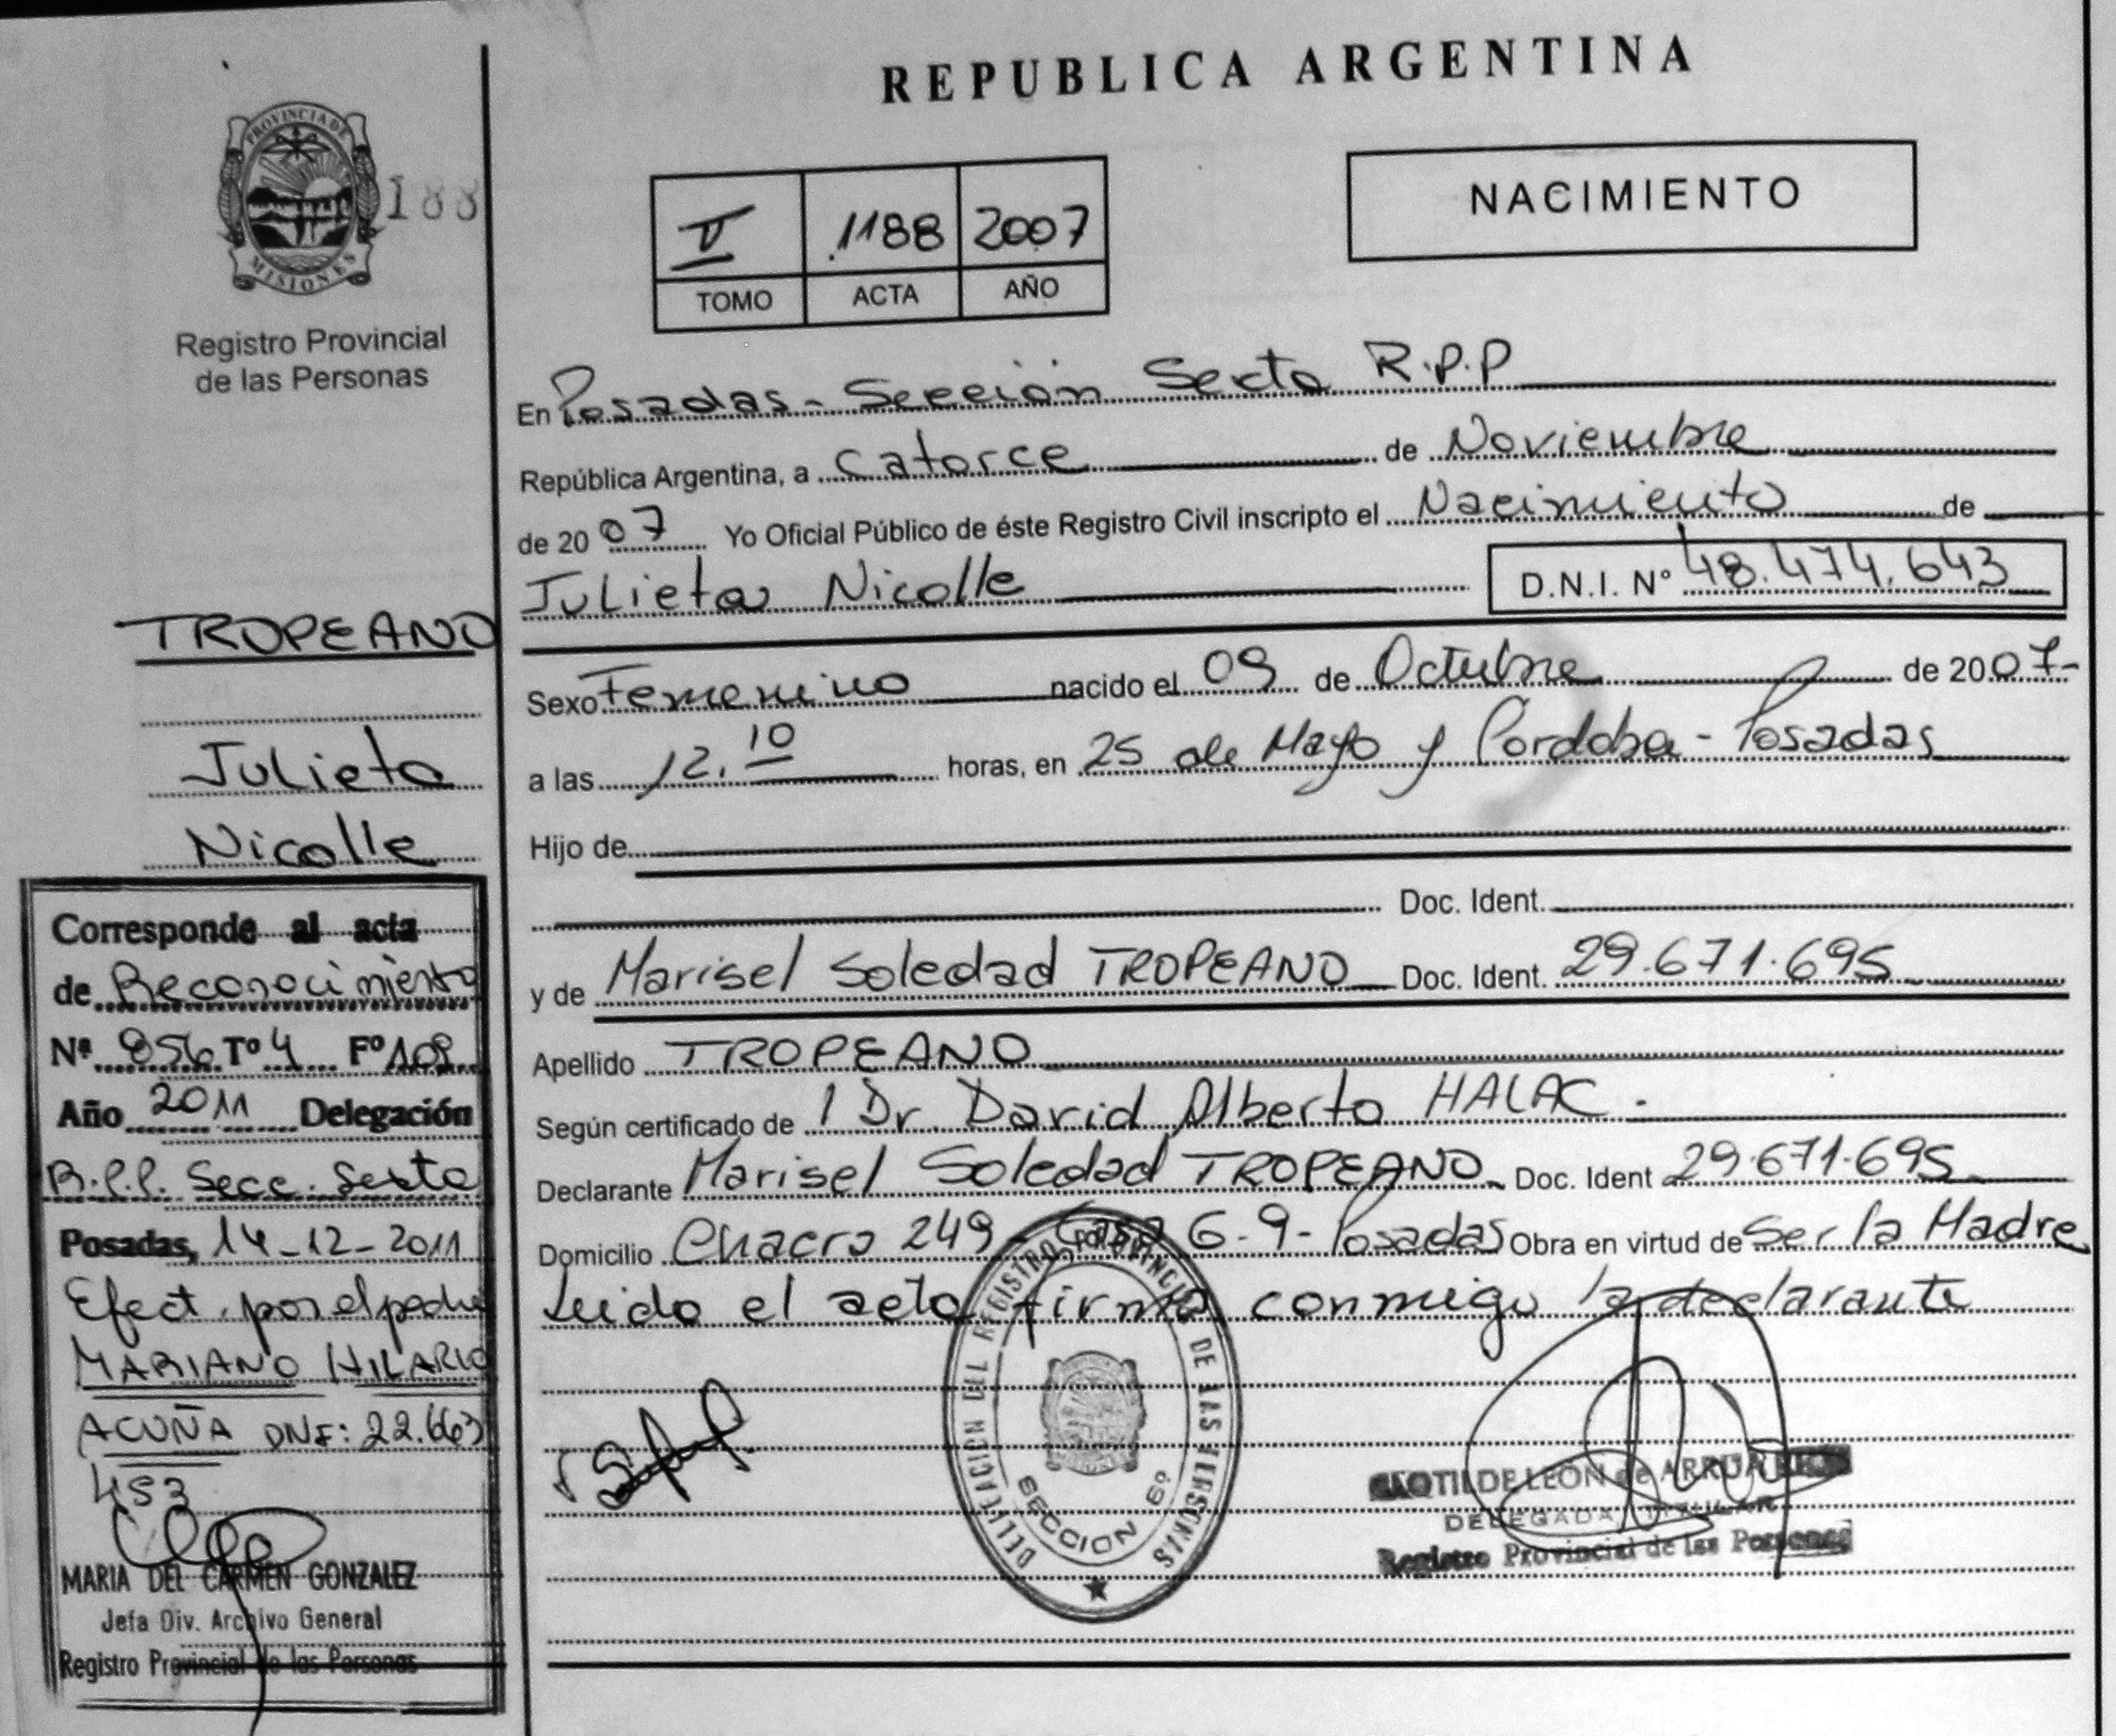 REPUBLICA ARGENTINA
PROVINCIA DE
MISIONES
188
Registro Provincial
de las Personas
V 1188 2007
TOMO ACTA AÑO
NACIMIENTO
En Posadas - Sección Sexta R.P.P
República Argentina, a Catorce de Noviembre
de 2007 Yo Oficial Público de éste Registro Civil inscripto el Nacimiento de
Julieta Nicolle D.N.I. Nº 48.474.643
TROPEANO
Julieta
Nicolle
Sexo Femenino nacido el 09 de Octubre de 2007-
a las 12.10 horas, en 25 de Mayo y Cordoba - Posadas
Hijo de
Doc. Ident.
y de Marisel Soledad TROPEANO Doc. Ident. 29.671.695
Apellido TROPEANO
Según certificado de 1 Dr. David Alberto HALAC.
Declarante Marisel Soledad TROPEANO Doc. Ident 29.671.695
Domicilio Chacra 249 - Casa 6-9- Posadas Obra en virtud de Ser la Madre
Leido el acta firma conmigo la declarante
Corresponde al acta
de Reconocimiento
Nº 856 Tº 4 Fº 108
Año 2011 Delegación
R.P.P. Secc. Sexta
Posadas, 14-12-2011
Efect. por el padre
MARIANO HILARIO
ACUÑA DNI: 22.663
453
MARIA DEL CARMEN GONZALEZ
Jefa Div. Archivo General
Registro Provincial de las Personas
DELEGACION DEL REGISTRO PROVINCIAL DE LAS PERSONAS
SECCION 6º
CLOTILDE LEÓN de ARRUA
DELEGADA TITULAR
Registro Provincial de las Personas